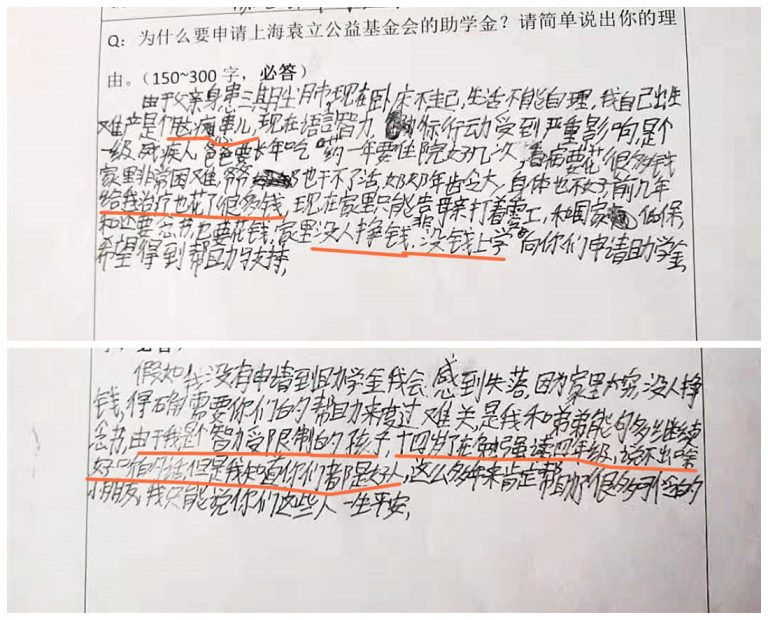 Q：为什么要申请上海袁立公益基金会的助学金？请简单说出你的理
由。（150~300 字，必答）
由于父亲身患三期尘肺,现在卧床不起,生活不能自理,我自己出生
难产是个脑瘫患儿,现在语言智力 行动受到严重影响,是个
一级残疾人,爸爸要长年吃药一年要住院好几次,看病要花很多钱
家里非常困难,爷爷 也干不了活,奶奶年令大,身体也不好前几年
给我治疗也花了很多钱,现在家里只能靠母亲打着零工,和国家 低保
和还要念书也要花钱,家里没人挣钱,没钱上学 向你们申请助学金,
希望得到帮助与支持,
假如我没有申请到助学金我会感到失落,因为家里太穷,没人挣
钱,得确需要你们的帮助来度过难关,是我和弟弟能够继续
念书,由于我是个智力受限制的孩子,十四岁了在勉强读四年级,说不出啥
好听的话但是我知道你们都是好人,这么多年来肯定帮助了很多可怜的
小朋友,我只能说你们这些人一生平安,